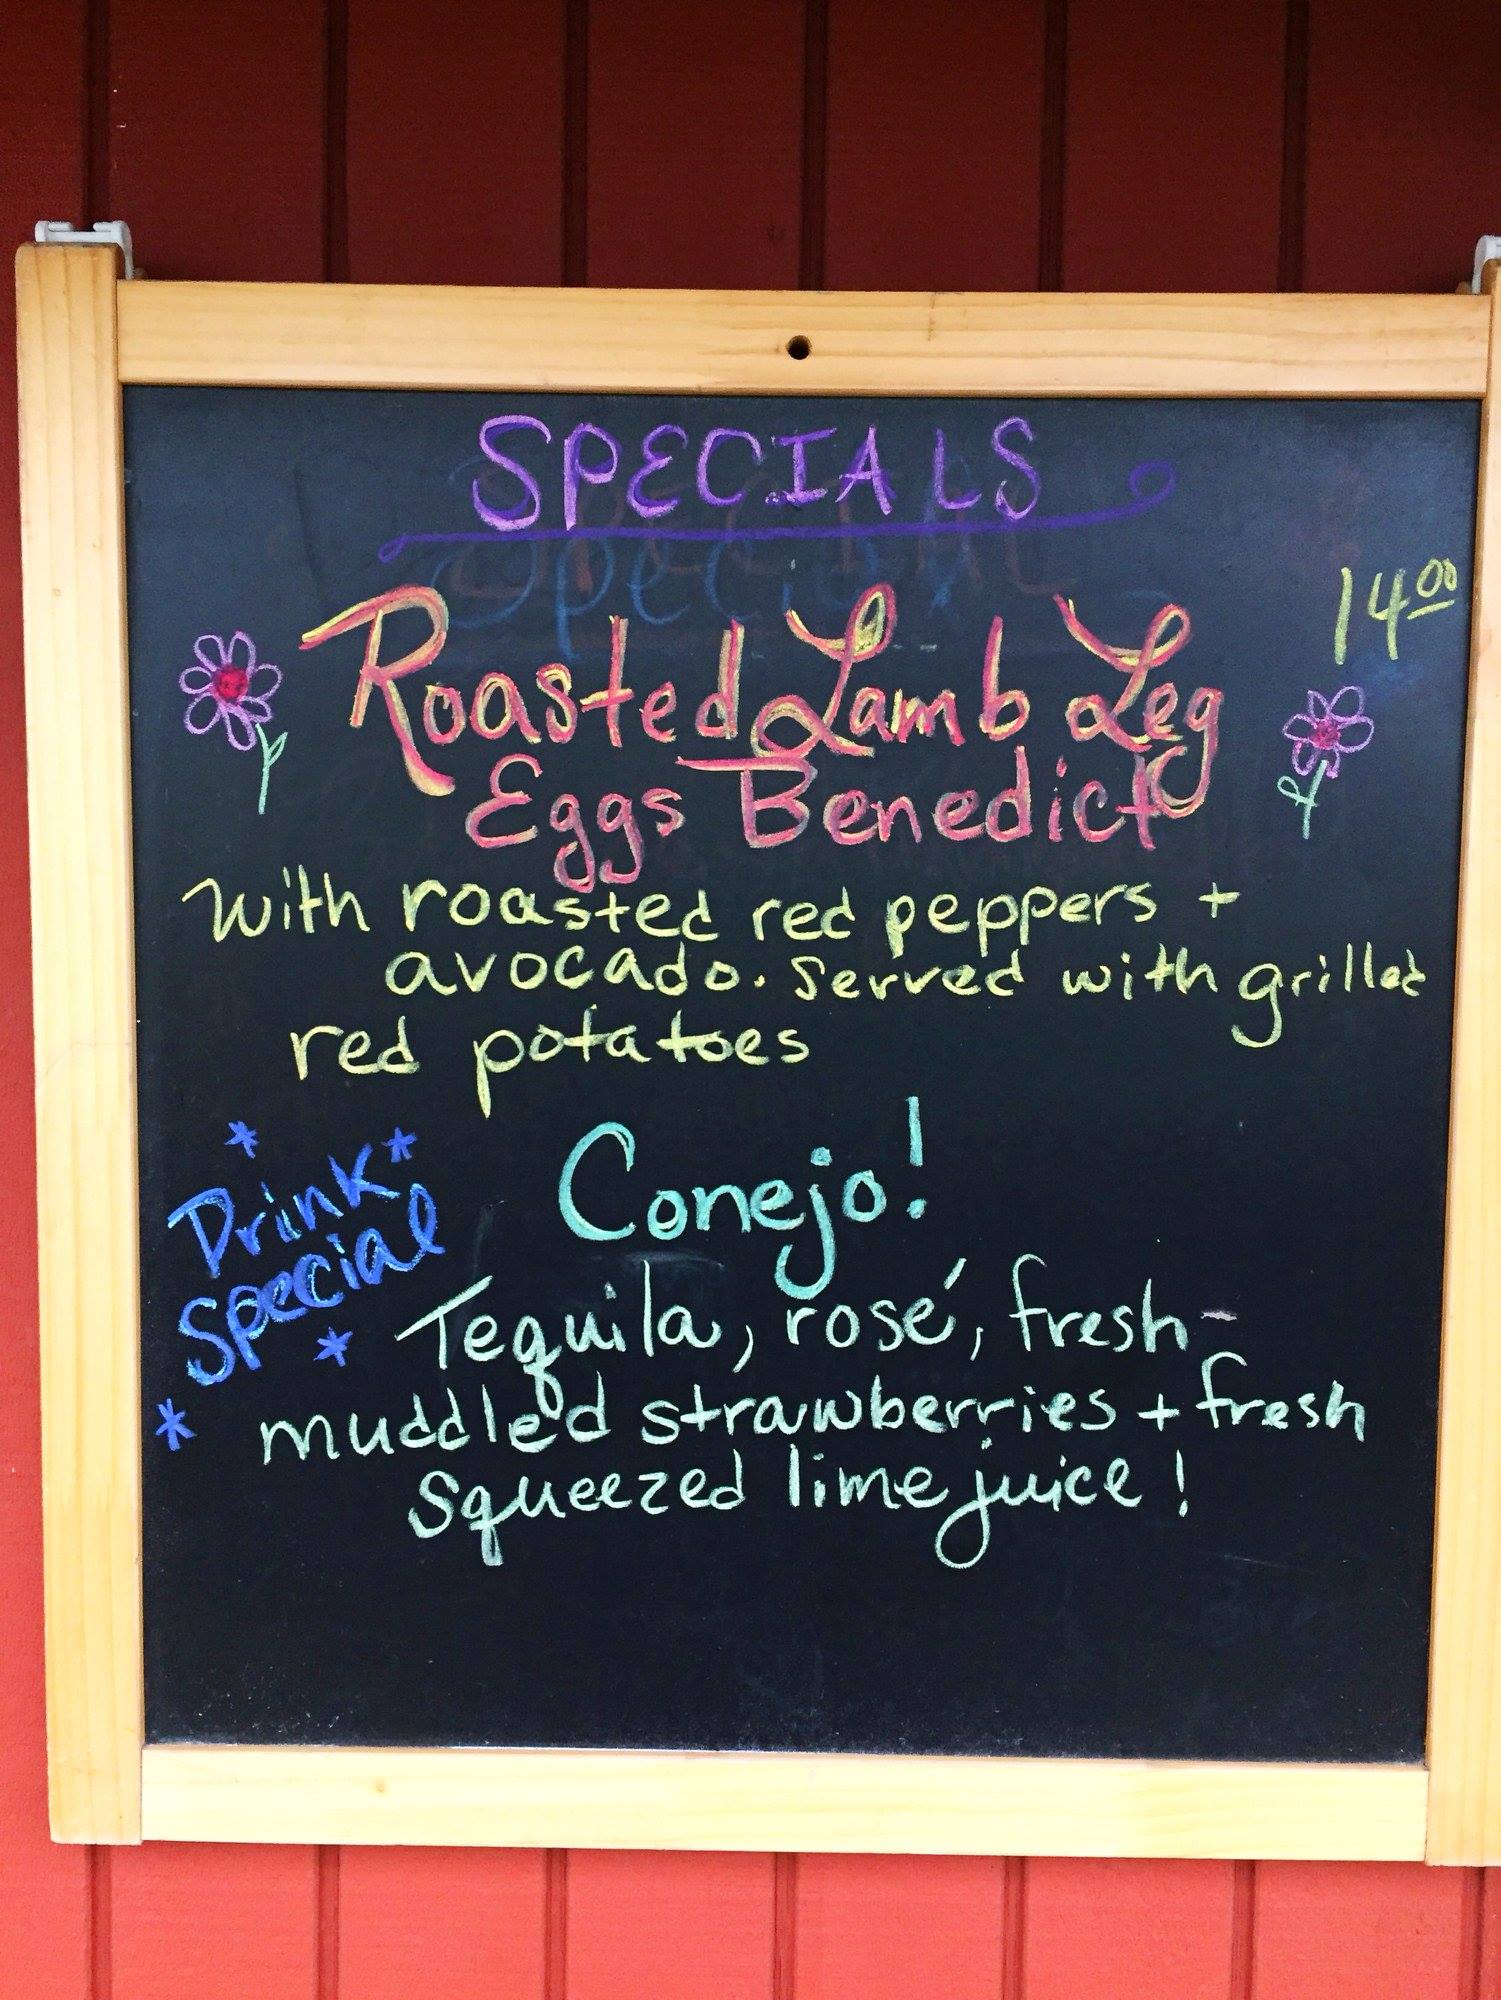 SPECIALS
14.00
Roasted Lamb Leg
Eggs Benedict
with roasted red peppers +
avocado. Served with grilled
red potatoes
*Drink*
Special
*
*
Conejo!
Tequila, rosé, fresh-
muddled strawberries + fresh
squeezed lime juice!